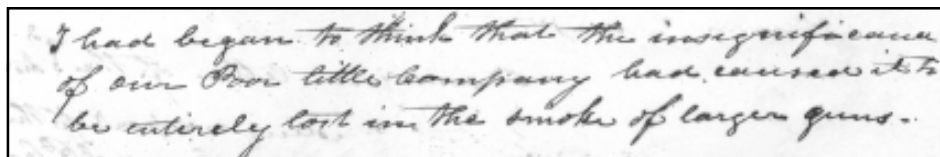 I had began to think that the insignificance
of our Poor little Company had caused it to
be entirely lost in the smoke of larger guns.